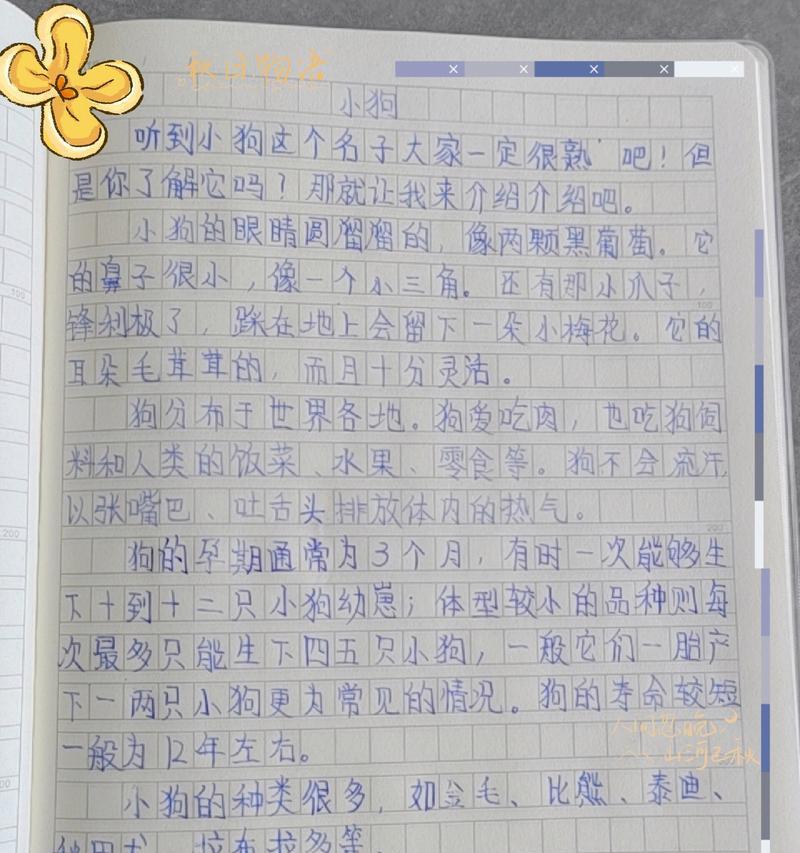 秋日物语
小狗
听到小狗这个名子大家一定很熟 吧！但
是你了解它吗？那就让我来介绍介绍吧。
小狗的眼睛圆溜溜的，像两颗黑葡萄。它
的鼻子很小，像一个小三角。还有那小爪子，
锋利极了，踩在地上会留下一朵小梅花。它的
耳朵毛茸茸的，而且十分灵活。
狗分布于世界各地。狗爱吃肉，也吃狗饲
料和人类的饭菜、水果、零食等。狗不会流汗，
以张嘴巴、吐舌头排放体内的热气。
狗的孕期通常为3个月，有时一次能够生
下十到十二只小狗幼崽；体型较小的品种则每
次最多只能生下四五只小狗，一般它们一胎产
下一两只小狗更为常见的情况。狗的寿命较短
一般为12年左右。
小狗的种类很多，如金毛、比熊、泰迪、
秋田犬、拉布拉多等。
人间忽晚
山河已秋
100
200
100
200